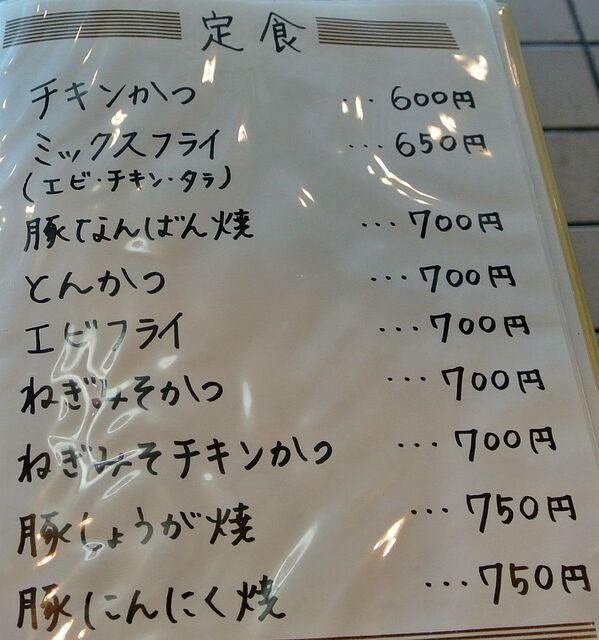 定食
チキンかつ ... 600円
ミックスフライ ... 650円
(エビ・チキン・タラ)
豚なんばん焼 ... 700円
とんかつ ... 700円
エビフライ ... 700円
ねぎみそかつ ... 700円
ねぎみそチキンかつ ... 700円
豚しょうが焼 ... 750円
豚にんにく焼 ... 750円